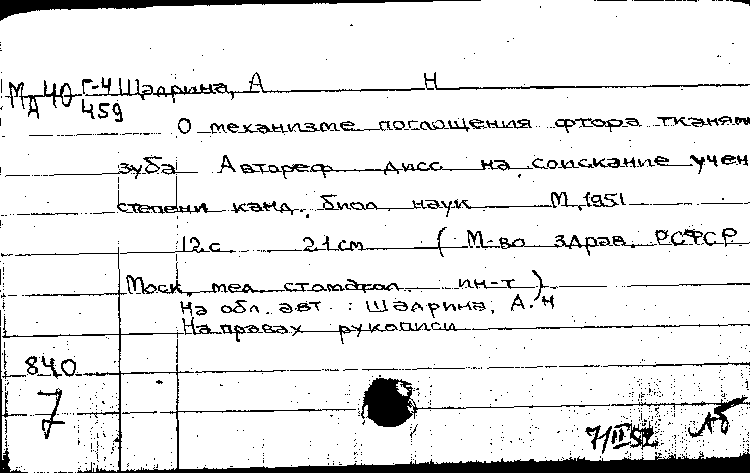 МА 40 Г-4 Шадрина, А Н
459
О механизме поглощения фтора тканям
зуба Автореф дисс на соискание учен
степени канд. биол наук М, 1951
12 с. 21 см (М-во здрав. РСФСР
Моск. мед. стоматол. ин-т)
На обл. авт. : Шадрина, А. Н
На правах рукописи
840
7
7/II 52